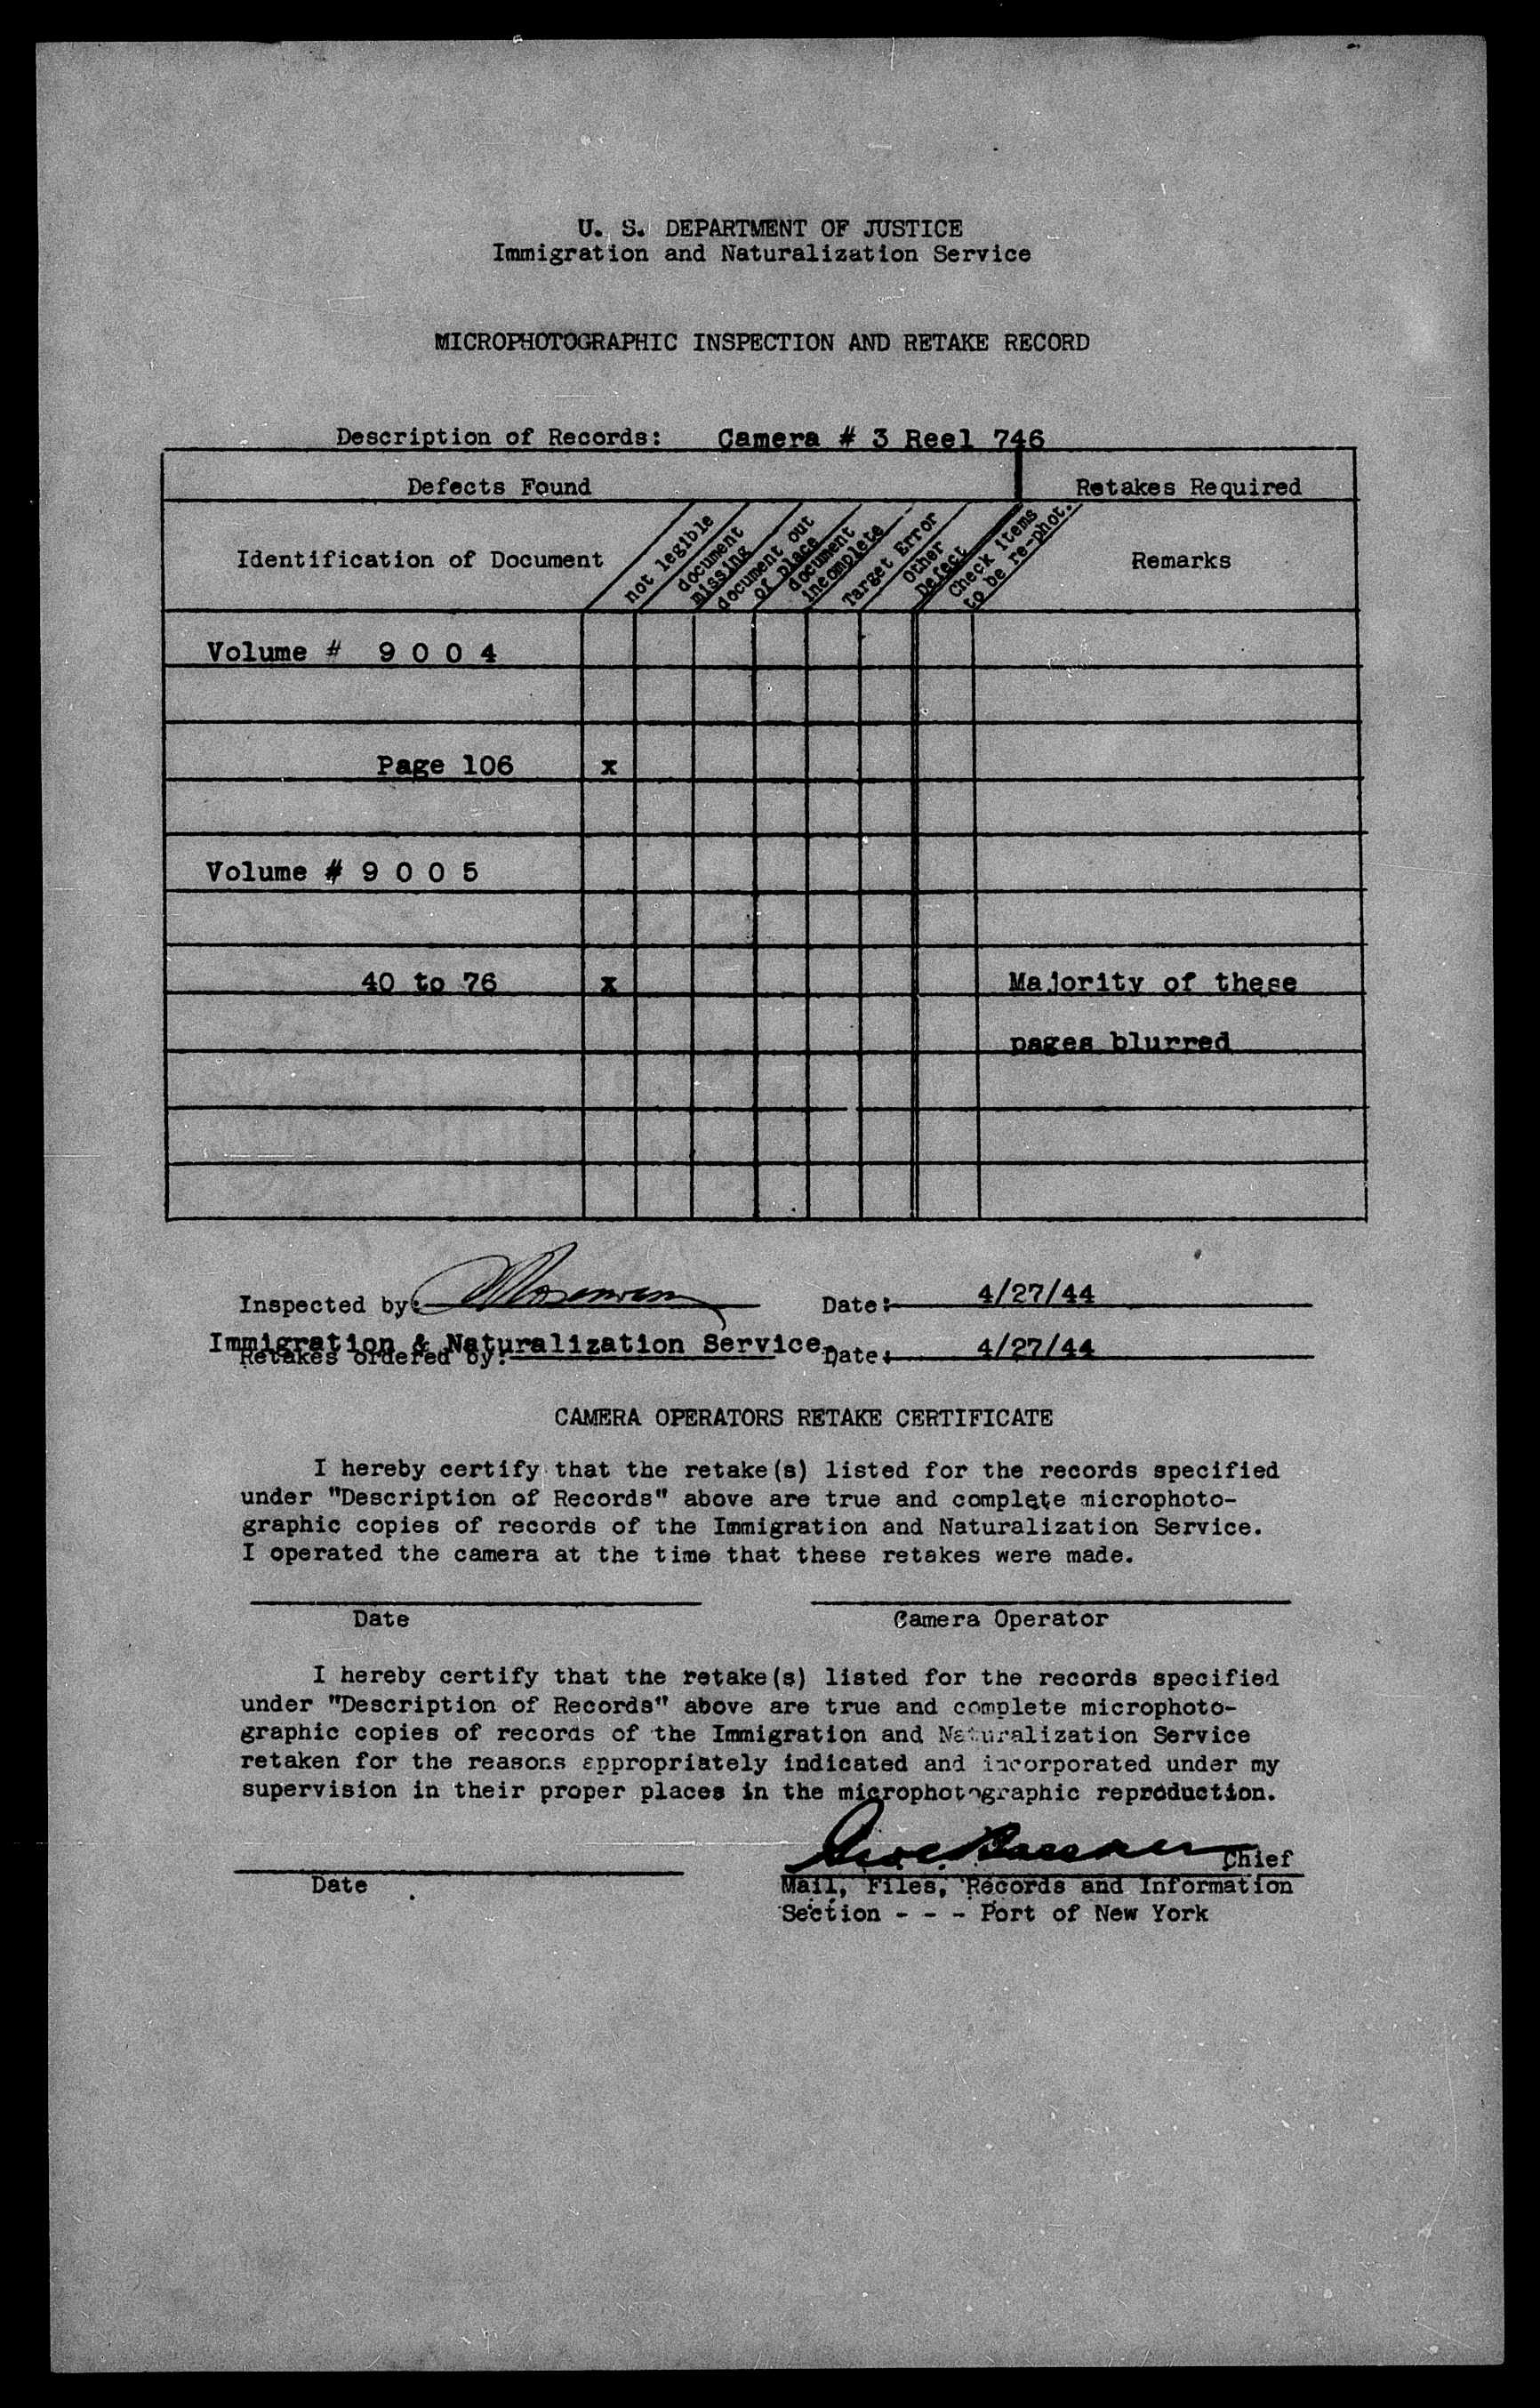 U. S. DEPARTMENT OF JUSTICE
Immigration and Naturalization Service
MICROPHOTOGRAPHIC INSPECTION AND RETAKE RECORD
Description of Records: Camera # 3 Reel 746
Defects Found Retakes Required
Identification of Document
not legible
document
missing
document out
of place
document
incomplete
Target Error
Other
Defect
Check items
to be re-phot.
Remarks
Volume # 9 0 0 4
Page 106 x
Volume # 9 0 0 5
40 to 76 x Majority of these
pages blurred
Inspected by: Date: 4/27/44
Immigration & Naturalization Service
Retakes ordered by: Date: 4/27/44
CAMERA OPERATORS RETAKE CERTIFICATE
I hereby certify that the retake(s) listed for the records specified
under "Description of Records" above are true and complete microphoto-
graphic copies of records of the Immigration and Naturalization Service.
I operated the camera at the time that these retakes were made.
Date Camera Operator
I hereby certify that the retake(s) listed for the records specified
under "Description of Records" above are true and complete microphoto-
graphic copies of records of the Immigration and Naturalization Service
retaken for the reasons appropriately indicated and incorporated under my
supervision in their proper places in the microphotographic reproduction.
Chief
Date Mail, Files, Records and Information
Section - - - Port of New York